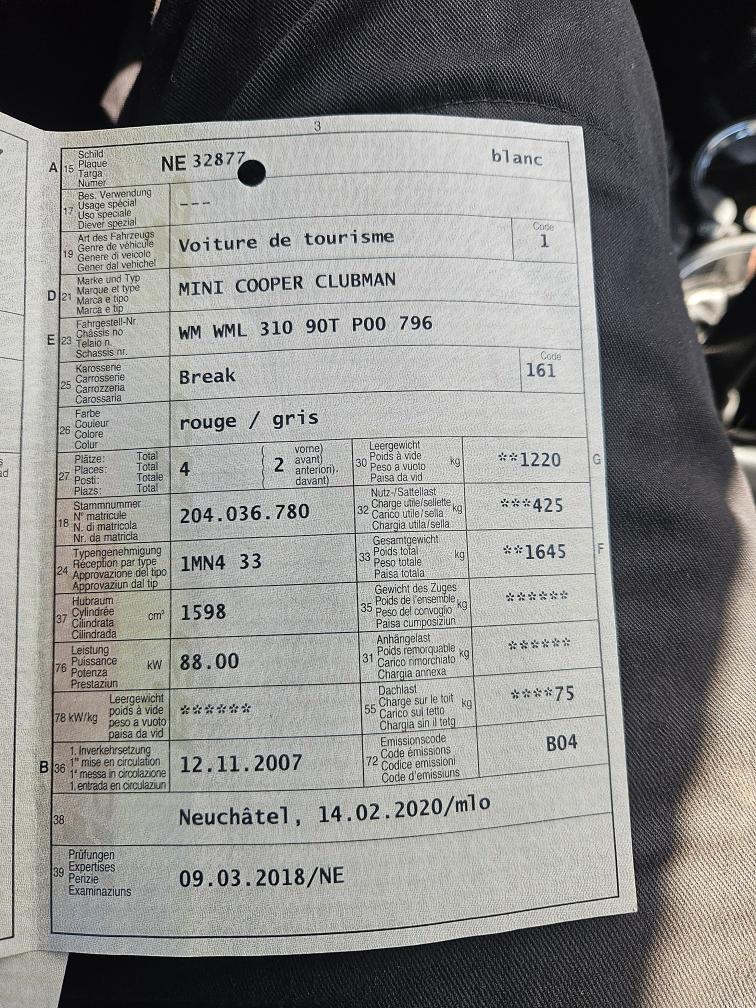 3
A 15 Schild NE 32877 blanc
Plaque
Targa
Numer
17 Bes. Verwendung ---
Usage spécial
Uso speciale
Diever spezial
19 Art des Fahrzeugs Voiture de tourisme Code
Genre de véhicule 1
Genere di veicolo
Gener dal vehichel
D 21 Marke und Typ MINI COOPER CLUBMAN
Marque et type
Marca e tipo
Marca e tip
E 23 Fahrgestell-Nr. WM WML 310 90T P00 796
Châssis no
Telaio n.
Schassis nr.
25 Karosserie Break Code
Carrosserie 161
Carrozzeria
Carossaria
26 Farbe rouge / gris
Couleur
Colore
Colur
27 Plätze: Total 4 ( 2 vorne)
Places: Total avant)
Posti: Totale anteriori).
Plazs: Total davant)
30 Leergewicht kg **1220 G
Poids à vide
Peso a vuoto
Paisa da vid
18 Stammnummer 204.036.780
N° matricule
N. di matricola
Nr. da matricla
32 Nutz-/Sattellast kg ***425
Charge utile/sellette
Carico utile/sella
Chargia utila/sella
24 Typengenehmigung 1MN4 33
Réception par type
Approvazione del tipo
Approvaziun dal tip
33 Gesamtgewicht kg **1645 F
Poids total
Peso totale
Paisa totala
37 Hubraum cm³ 1598
Cylindrée
Cilindrata
Cilindrada
35 Gewicht des Zuges kg ******
Poids de l'ensemble
Peso del convoglio
Paisa cumposiziun
76 Leistung kW 88.00
Puissance
Potenza
Prestaziun
31 Anhängelast kg ******
Poids remorquable
Carico rimorchiato
Chargia annexa
78 kW/kg Leergewicht ******
poids à vide
peso a vuoto
paisa da vid
55 Dachlast kg ****75
Charge sur le toit
Carico sul tetto
Chargia sin il tetg
B 36 1. Inverkehrsetzung 12.11.2007
1re mise en circulation
1a messa in circolazione
1. entrada en circulaziun
72 Emissionscode B04
Code émissions
Codice emissioni
Code d'emissiuns
38 Neuchâtel, 14.02.2020/mlo
39 Prüfungen 09.03.2018/NE
Expertises
Perizie
Examinaziuns